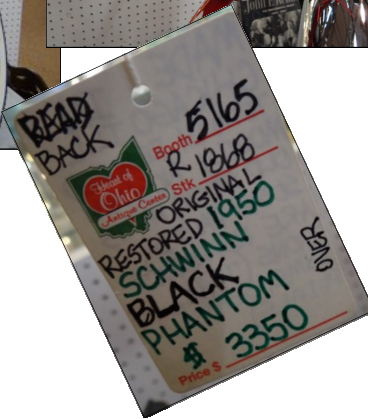 BEAD
BACK
Booth 5165
R
Stk 1868
Heart of
Ohio
Antique Center
ORIGINAL
RESTORED 1950
SCHWINN
BLACK
PHANTOM
$ 3350
Price $
OVER